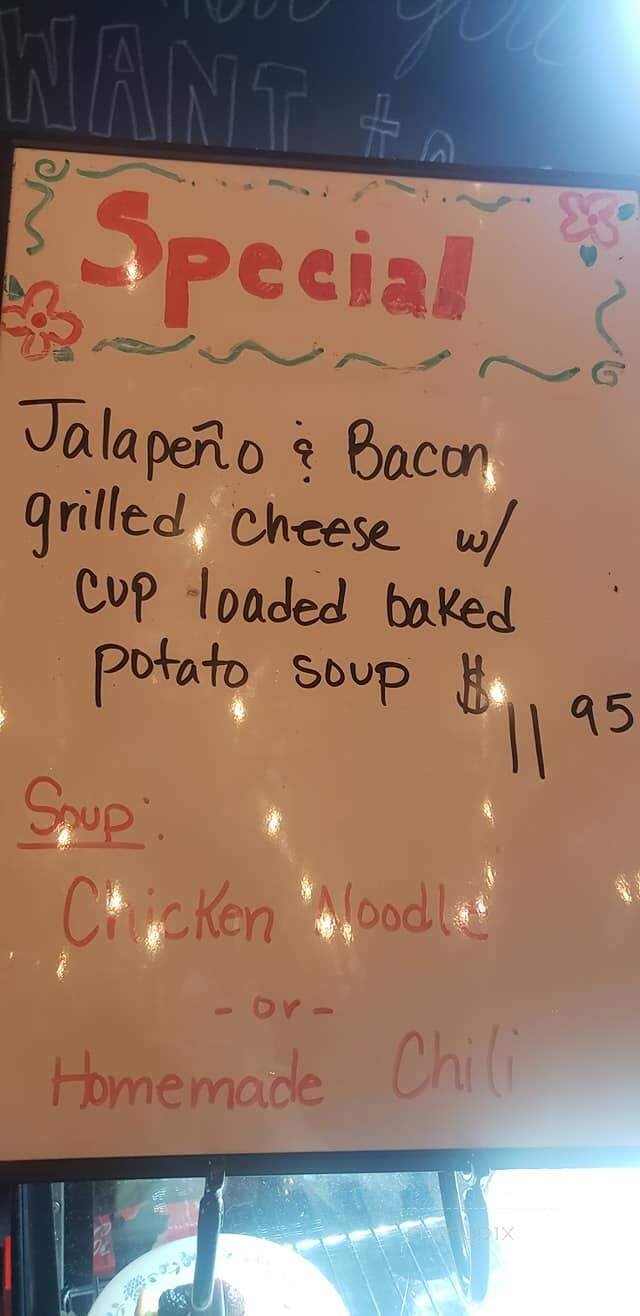 WANT to
Special
Jalapeño & Bacon
grilled cheese w/
cup loaded baked
potato soup $11 95
Soup:
Chicken Noodle
- or -
Homemade Chili